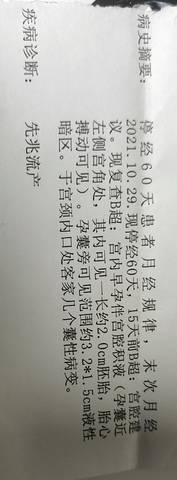 病史摘要：
停经60天患者月经规律，末次月经
2021.10.29，现停经60天，15天前B超：宫腔建
议。现复查B超：宫内早孕伴宫腔积液（孕囊近
左侧宫角处，其内可见一长约2.0cm胚胎，胎心
搏动可见）。孕囊旁可见范围约3.2*1.5cm液性
暗区。于宫颈内口处客家几个囊性病变。
疾病诊断：
先兆流产